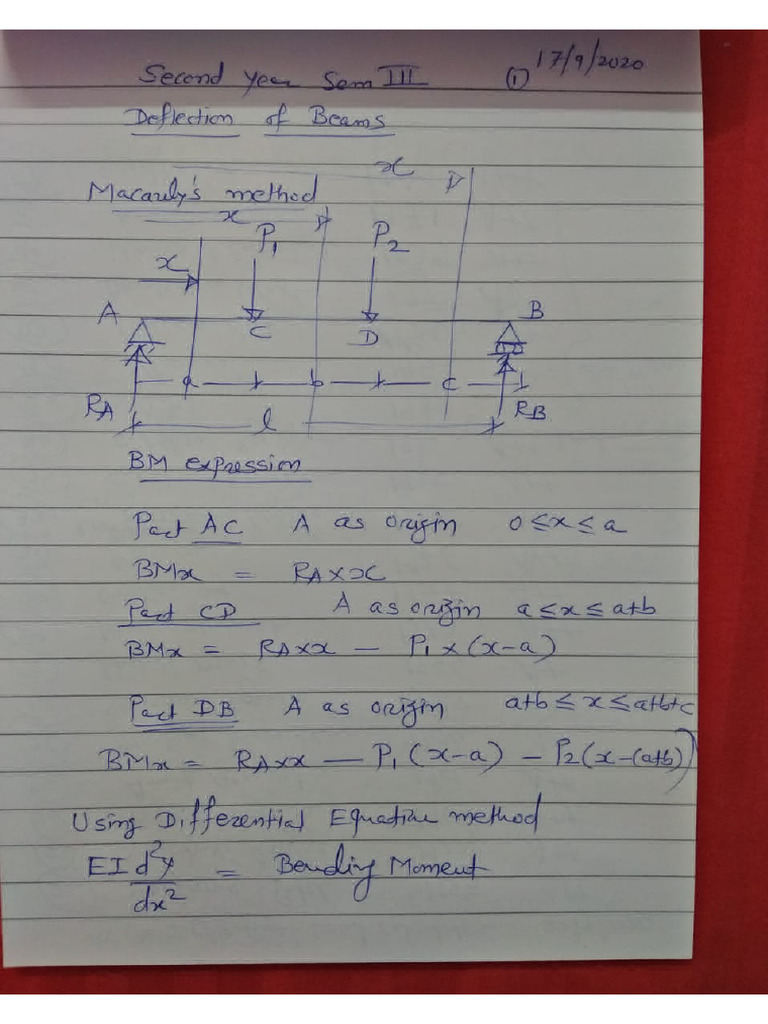 17/9/2020
Second year Sem III ①
Deflection of Beams
x
Macauly's method
x
P1 P2
x
A B
C D
a b c
RA RB
l
BM expression
Part AC A as origin 0 ≤ x ≤ a
BMx = RA × x
Part CD A as origin a ≤ x ≤ a+b
BMx = RA × x — P1 × (x-a)
Part DB A as origin a+b ≤ x ≤ a+b+c
BMx = RA × x — P1 (x-a) — P2 (x-(a+b))
Using Differential Equation method
EI d²y = Bending Moment
dx²